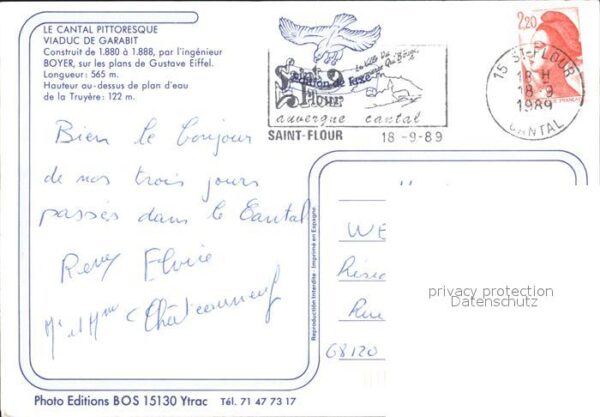 LE CANTAL PITTORESQUE
VIADUC DE GARABIT
Construit de 1.880 à 1.888, par l'ingénieur
BOYER, sur les plans de Gustave Eiffel.
Longueur: 565 m.
Hauteur au-dessus de plan d'eau
de la Truyère: 122 m.
Saint
Flour
édition de luxe
auvergne cantal
SAINT-FLOUR 18-9-89
15 ST-FLOUR
18 H
18 9
1989
CANTAL
2,20
Bien le bonjour
de nos trois jours
passés dans le Cantal
Remy Elvire
Mr et Mme Châteauneuf
Reproduction Interdite - Imprimé en Espagne
WE
Rési
Rue
68120
privacy protection
Datenschutz
Photo Editions BOS 15130 Ytrac Tél. 71 47 73 17